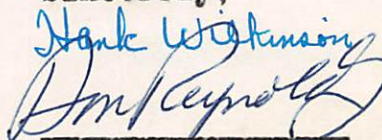 Hank Wilkinson
Don Reynolds